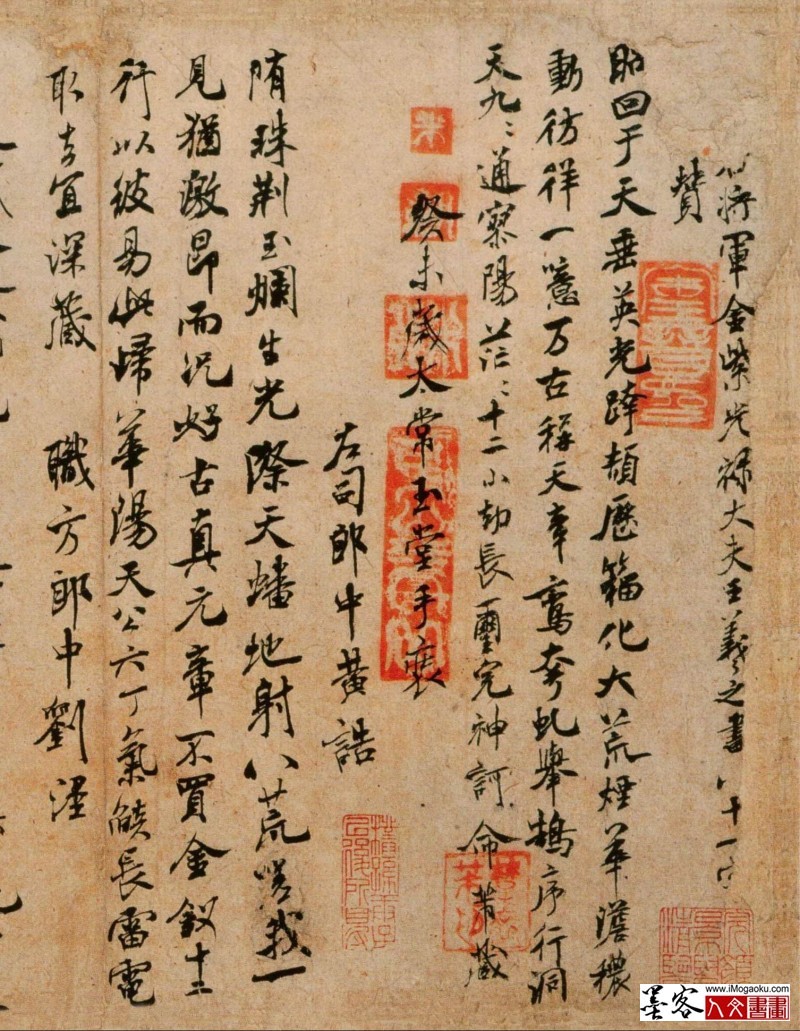 將軍金紫光祿大夫王羲之書八十一字
贊
昭回于天垂英光跨頡歷籀化大荒煙華澹穠
動彷徉一噫万古稱天章鸞夸虬舉鵠序行洞
天九〻通寥陽茫〻十二小劫長璽完神訶命芾藏
癸未歲太常玉堂手裝
左司郎中黃誥
隋珠荊玉爛生光際天蟠地射八荒嗟我一
見猶激昂而況好古真元章不買金釵十二
行以彼易此歸華陽天公六丁氣燄長雷電
取去宜深藏 職方郎中劉涇
墨客
www.iMogaoku.com
人文書畫